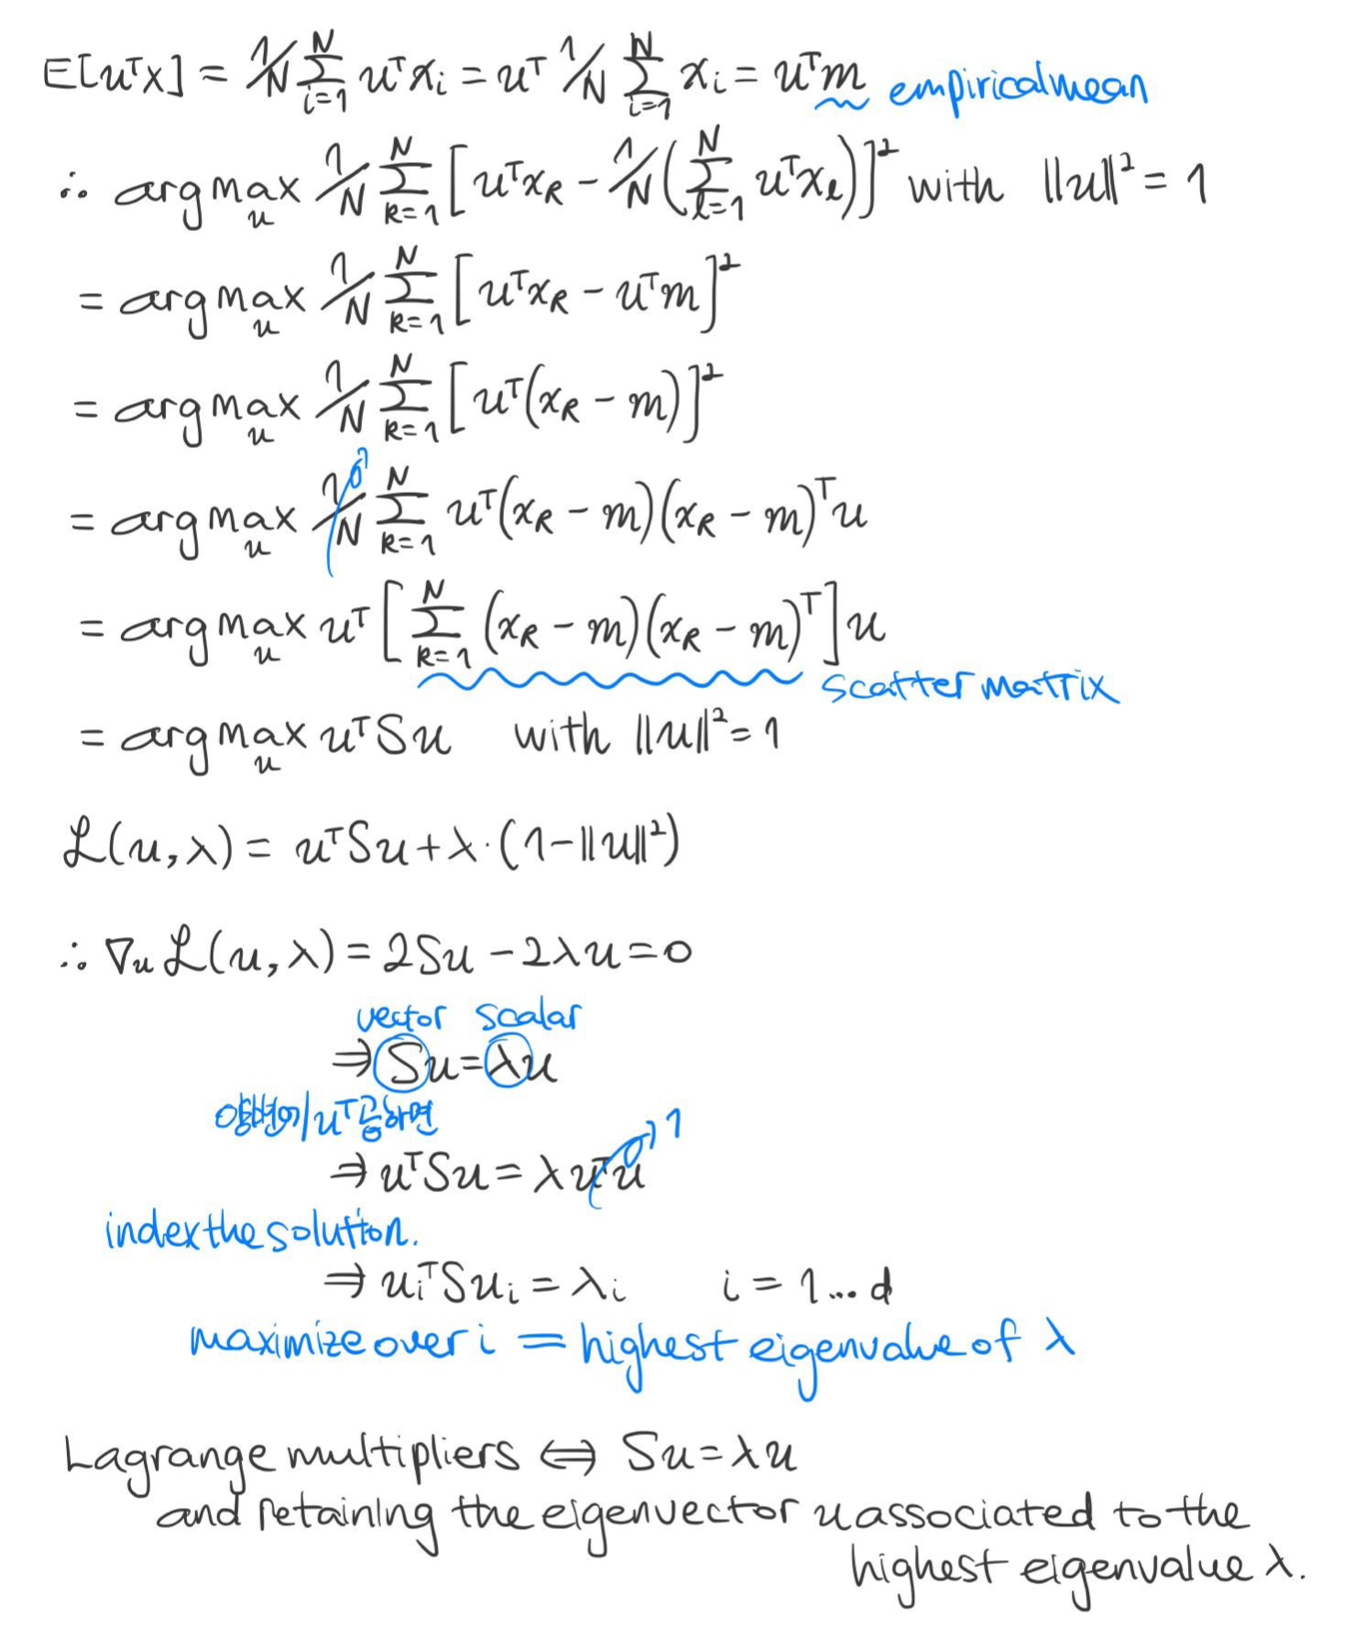 E[uᵀx] = 1/N Σ_{i=1}^{N} uᵀxᵢ = uᵀ 1/N Σ_{i=1}^{N} xᵢ = uᵀm empirical mean
∴ arg max_u 1/N Σ_{k=1}^{N} [uᵀx_k − 1/N(Σ_{l=1}^{N} uᵀx_l)]² with ||u||² = 1
= arg max_u 1/N Σ_{k=1}^{N} [uᵀx_k − uᵀm]²
= arg max_u 1/N Σ_{k=1}^{N} [uᵀ(x_k − m)]²
= arg max_u 1/N Σ_{k=1}^{N} uᵀ(x_k − m)(x_k − m)ᵀu
= arg max_u uᵀ[Σ_{k=1}^{N} (x_k − m)(x_k − m)ᵀ]u
scatter matrix
= arg max_u uᵀSu with ||u||² = 1
ℒ(u, λ) = uᵀSu + λ·(1 − ||u||²)
∴ ∇_u ℒ(u, λ) = 2Su − 2λu = 0
vector scalar
⇒ Su = λu
양변에 uᵀ곱하면
⇒ uᵀSu = λuᵀu 1
index the solution.
⇒ uᵢᵀSuᵢ = λᵢ i = 1 ... d
maximize over i = highest eigenvalue of λ
Lagrange multipliers ⇔ Su = λu
and retaining the eigenvector u associated to the
highest eigenvalue λ.